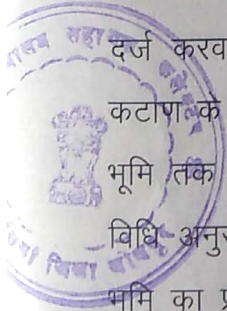 दर्ज करव
कटाण के
भूमि तक
विधि अनुस
भूमि का प्र